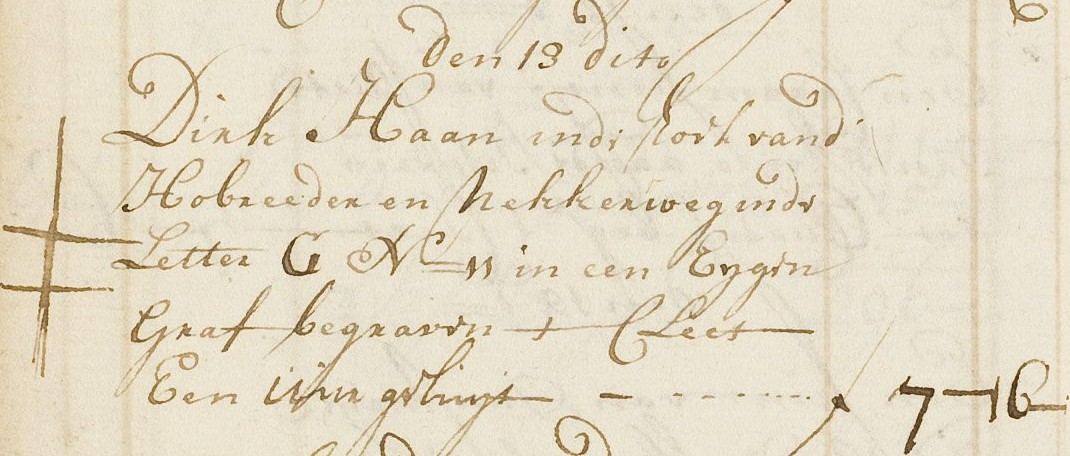 den 13 dito
Dirk Haan inde kork vand
Hobreeden en Nekkerweg inde
Letter G No 11 in een Eygen
Graf begraven + Cleet
Een uur geluyt 7-16